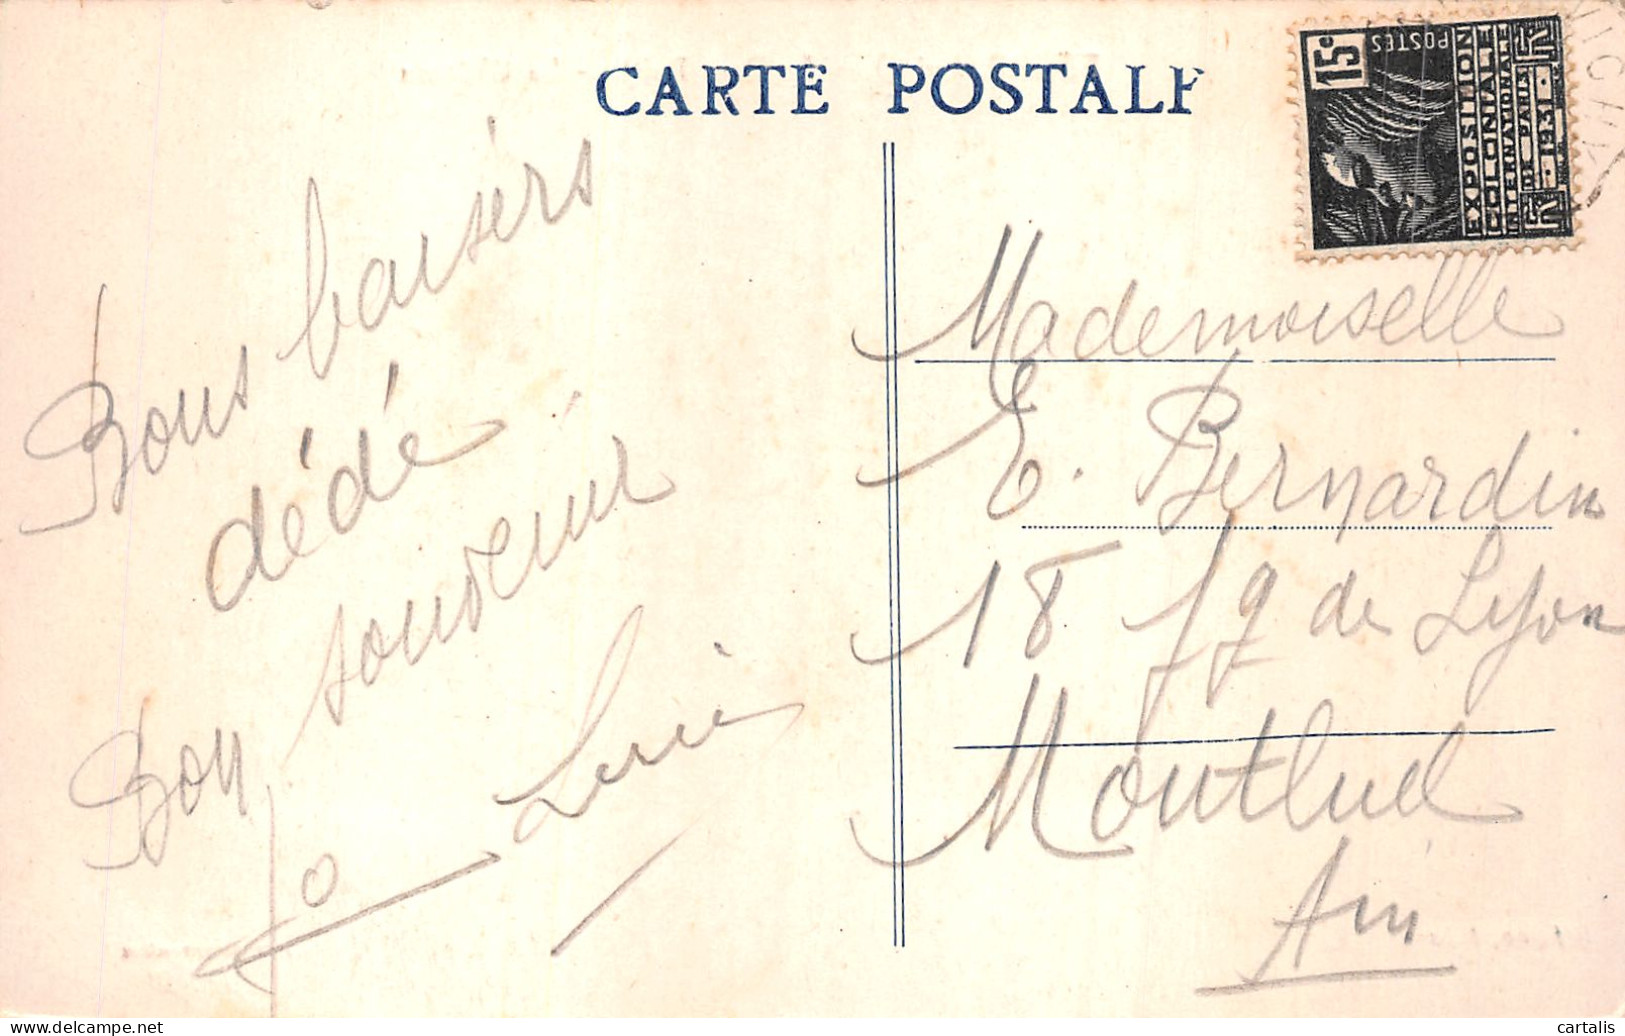 CARTE POSTALE
15c
POSTES
EXPOSITION
COLONIALE
INTERNATIONALE
DE PARIS
1931
Bons baisers
dédé
Bon souvenir
Jo
Mademoiselle
E. Bernardin
18 fg de Lyon
Montluel
Ain
delcampe.net
cartalis